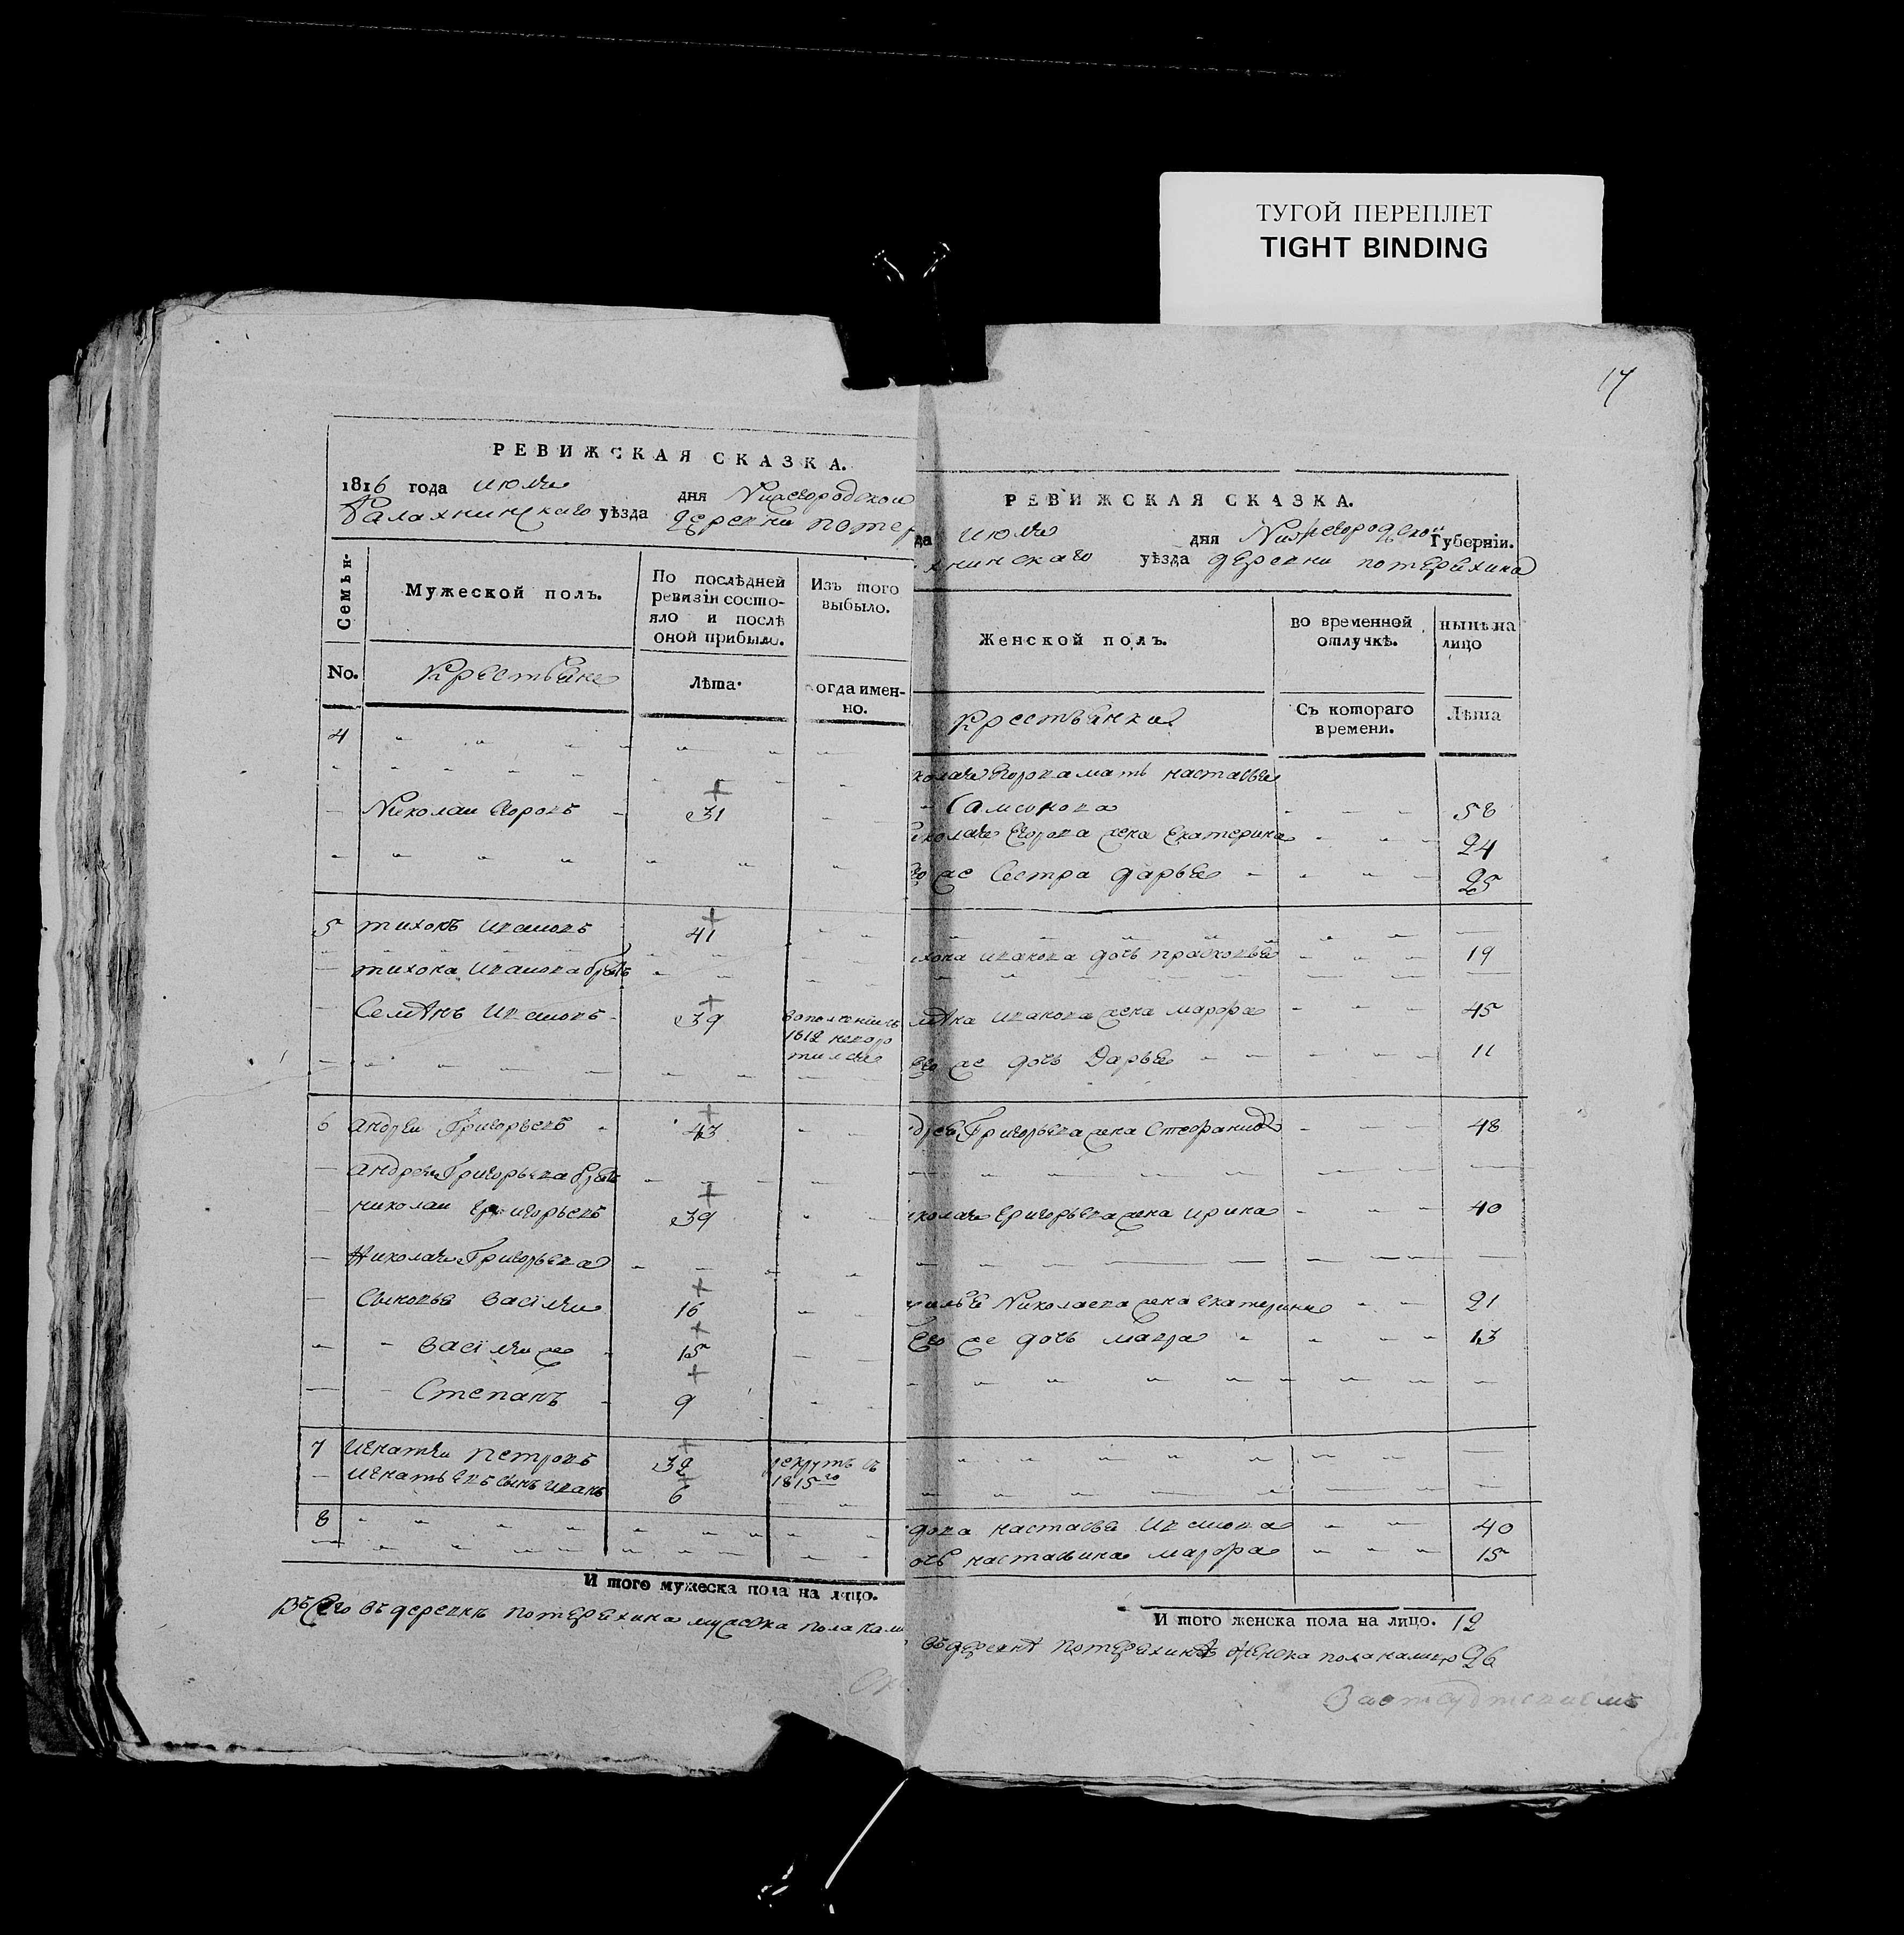 ТУГОЙ ПЕРЕПЛЕТ
TIGHT BINDING
17
РЕВИЖСКАЯ СКАЗКА.
1816 года июля дня Нижегородской
Балахнинскаго уѣзда деревни потер
Семьи
Мужеской полъ.
По послѣдней ревизіи состо-
яло и послѣ
оной прибыло.
Изъ того
выбыло.
No.
Крестьяне
Лѣта.
когда имен-
но.
4
Николаи Егоровъ 31
5 тихонъ Ивановъ 41
тихона Иванова братъ
Семѣнъ Ивановъ 39 вополчениі въ
1812 неворо
тился
6 андреи Григорьевъ 43
андрея Григорьева братъ
николаи григорьевъ 39
Николая Григорьева
Сыновья васілеи 16
васілеи же 15
Степанъ 9
7 Игнатеи петровъ 32 рекрутъ въ
Игнатьевъ сынъ иванъ 6 1815го
8
И того мужеска пола на лицо.
Всего въ деревнѣ потеряхина мужска пола нали
РЕВИЖСКАЯ СКАЗКА.
да июля дня Нижегородской Губерніи.
хнинскаго уѣзда деревни потеряхина
Женской полъ.
во временной
отлучкѣ.
нынѣ на
лицо
Крестьянки
Съ котораго
времени.
Лѣта
колая Егорова мать настасья
Самсонова 58
иколая Егорова жена Екатерина 24
го же Сестра дарья 25
ихона иванова дочь прасковья 19
мѣна иванова жена марфа 45
его же дочь Дарья 11
дрея Григорьева жена Стефанида 48
иколая Григорьева жена ирина 40
силья Николаева жена екатерина 21
Его же дочь мавра 13
дова настасья Иванова 40
очь настасьина марфа 15
И того женска пола на лицо. 12
въ деревнѣ потеряхинѣ женска пола налицо 26